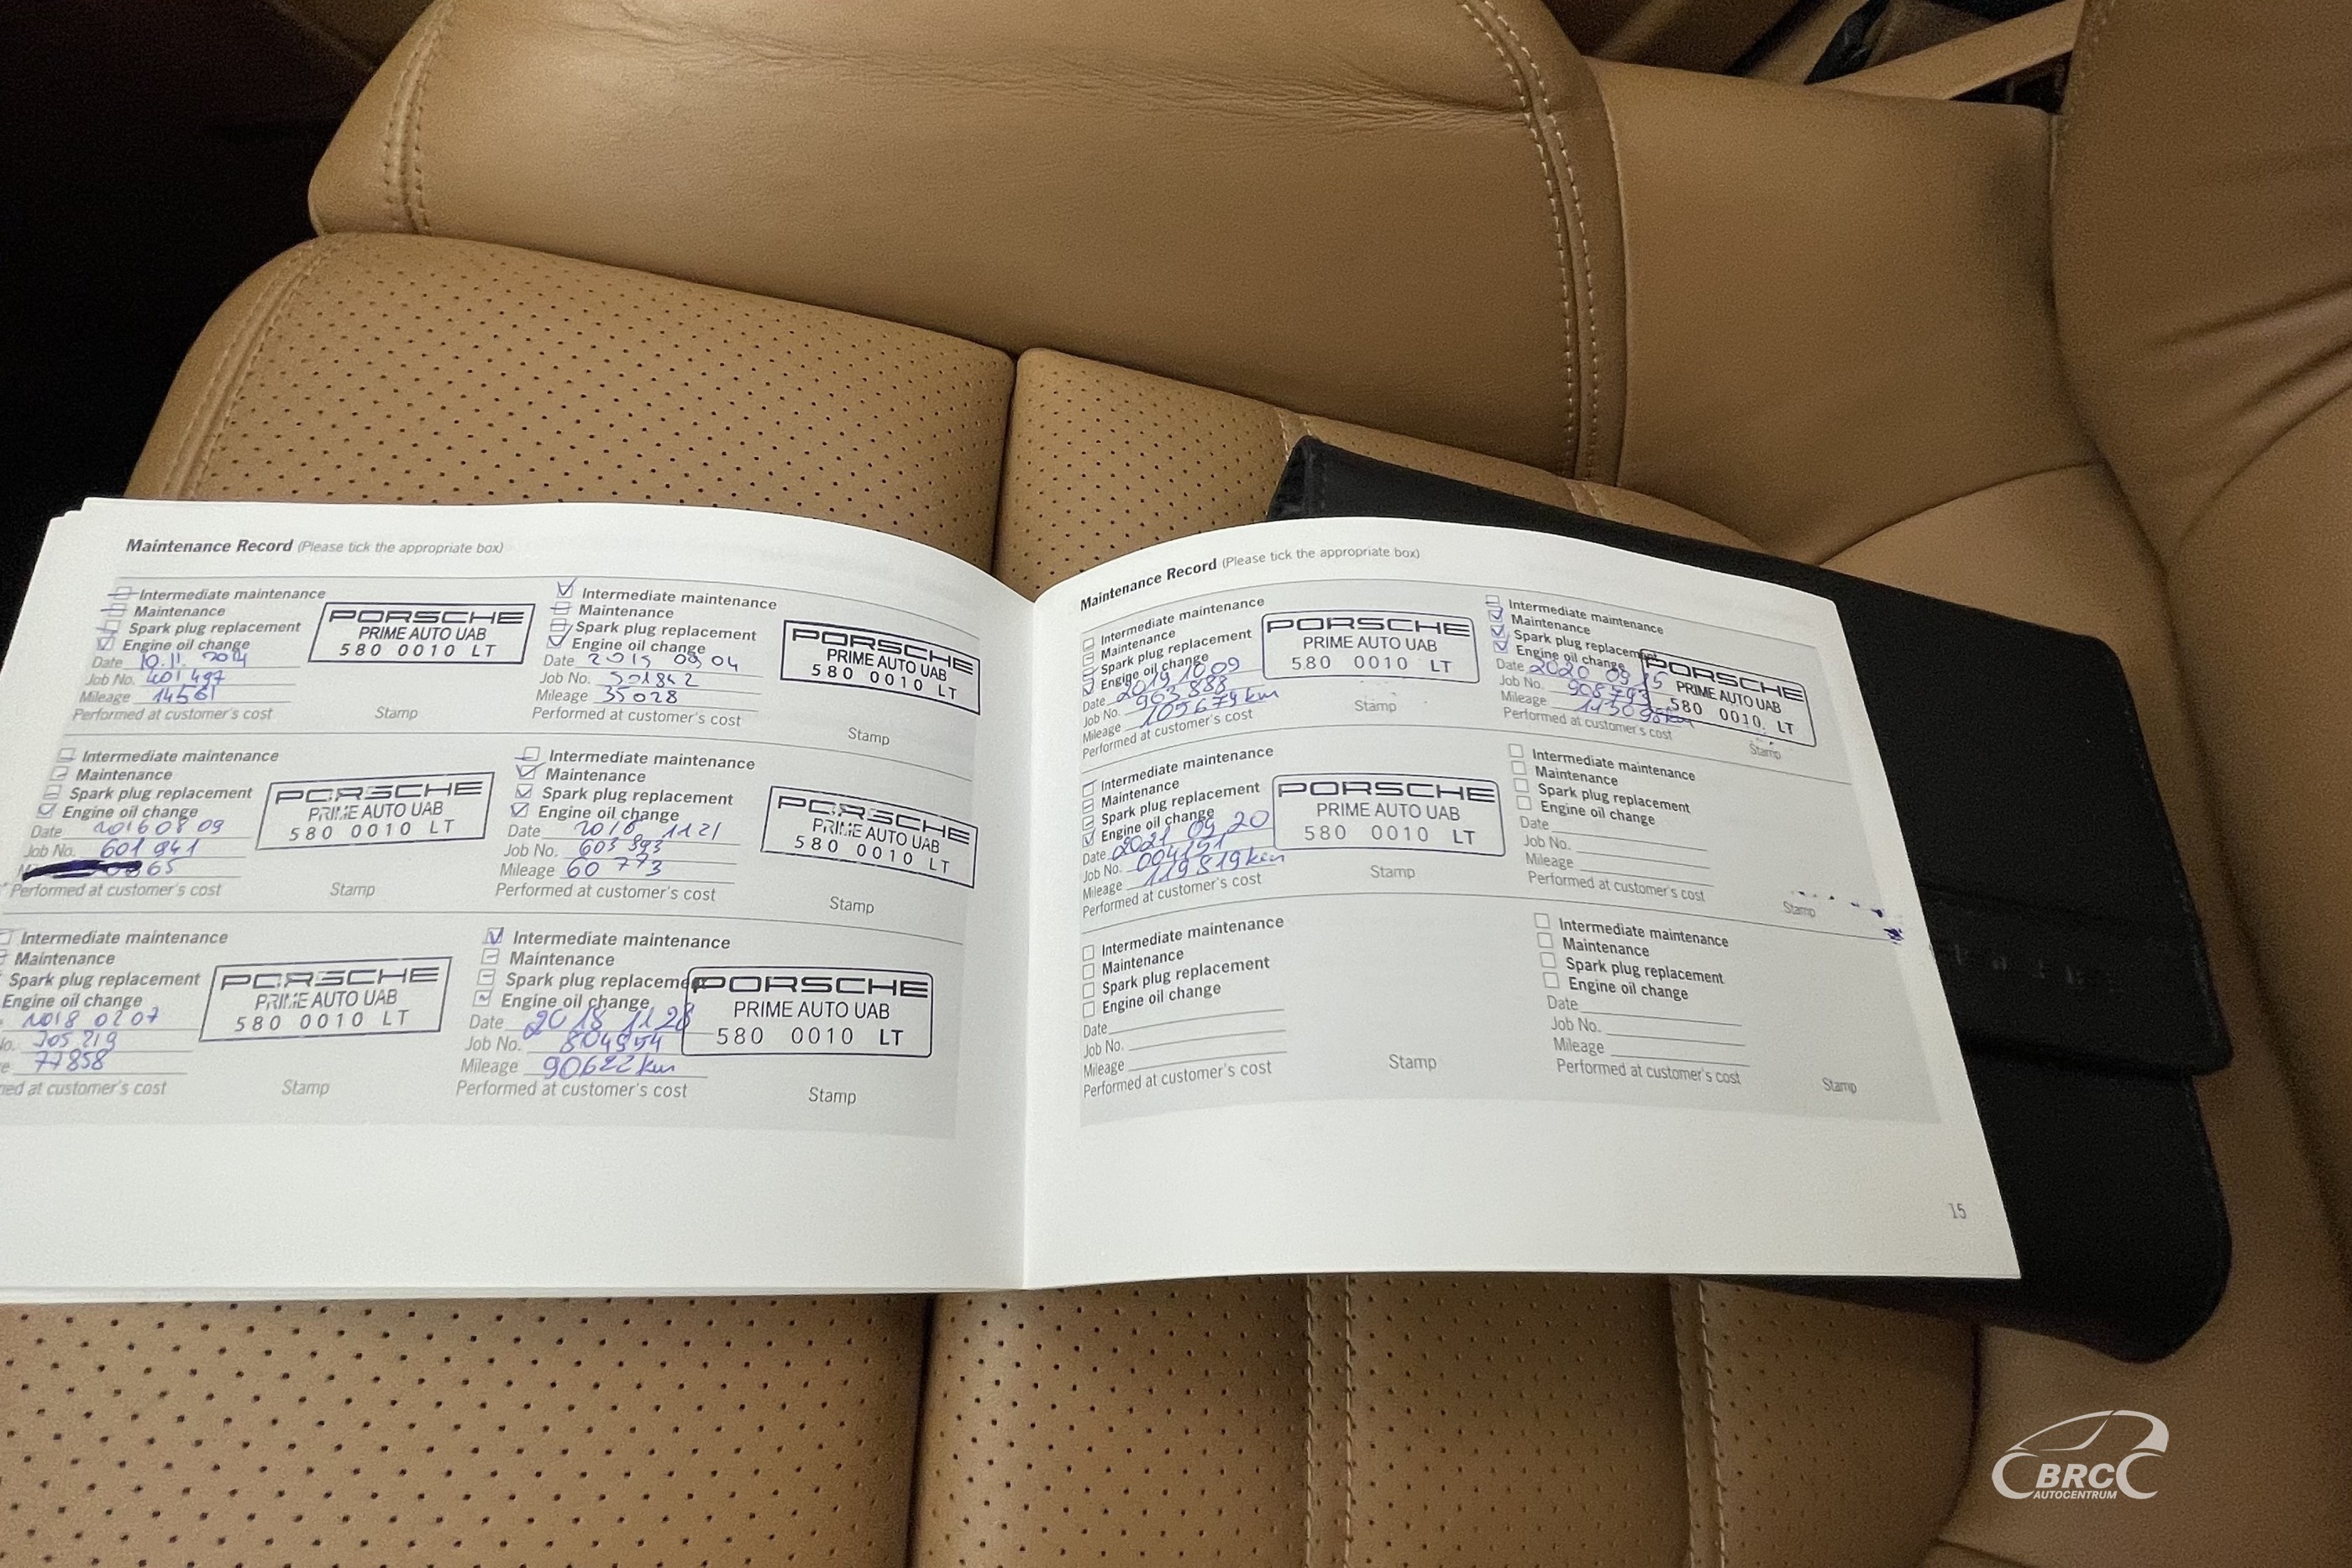 Maintenance Record (Please tick the appropriate box)
Intermediate maintenance
Maintenance
Spark plug replacement
Engine oil change
Date 10.11. 2014
Job No. 401 497
Mileage 14561
Performed at customer's cost
PORSCHE
PRIME AUTO UAB
580 0010 LT
Stamp
Intermediate maintenance
Maintenance
Spark plug replacement
Engine oil change
Date 2015 09 04
Job No. 501842
Mileage 35028
Performed at customer's cost
PORSCHE
PRIME AUTO UAB
580 0010 LT
Stamp
Intermediate maintenance
Maintenance
Spark plug replacement
Engine oil change
Date 2016 08 09
Job No. 601 941
65
Performed at customer's cost
PORSCHE
PRIME AUTO UAB
580 0010 LT
Stamp
Intermediate maintenance
Maintenance
Spark plug replacement
Engine oil change
Date 2016 11 21
Job No. 603 393
Mileage 60 773
Performed at customer's cost
PORSCHE
PRIME AUTO UAB
580 0010 LT
Stamp
Intermediate maintenance
Maintenance
Spark plug replacement
Engine oil change
2018 02 07
77858
at customer's cost
PORSCHE
PRIME AUTO UAB
580 0010 LT
Stamp
Intermediate maintenance
Maintenance
Spark plug
Engine oil change
Date 2018 11 28
Job No. 804954
Mileage 90622 km
Performed at customer's cost
PORSCHE
PRIME AUTO UAB
580 0010 LT
Stamp
Maintenance Record (Please tick the appropriate box)
Intermediate maintenance
Maintenance
Spark plug replacement
Engine oil change
Date 2019 10 09
Job No. 903 888
Mileage 105679 km
Performed at customer's cost
PORSCHE
PRIME AUTO UAB
580 0010 LT
Stamp
Intermediate maintenance
Maintenance
Spark plug
Engine oil change
Date 2020 09 15
Job No. 908793
Mileage
Performed at customer's cost
PORSCHE
PRIME AUTO UAB
580 0010 LT
Stamp
Intermediate maintenance
Maintenance
Spark plug replacement
Engine oil change
Date 2021 09 20
Job No. 004151
Mileage 119819 km
Performed at customer's cost
PORSCHE
PRIME AUTO UAB
580 0010 LT
Stamp
Intermediate maintenance
Maintenance
Spark plug replacement
Engine oil change
Date
Job No.
Mileage
Performed at customer's cost
Stamp
Intermediate maintenance
Maintenance
Spark plug replacement
Engine oil change
Date
Job No.
Mileage
Performed at customer's cost
Stamp
Intermediate maintenance
Maintenance
Spark plug replacement
Engine oil change
Date
Job No.
Mileage
Performed at customer's cost
Stamp
15
BRC
AUTOCENTRUM